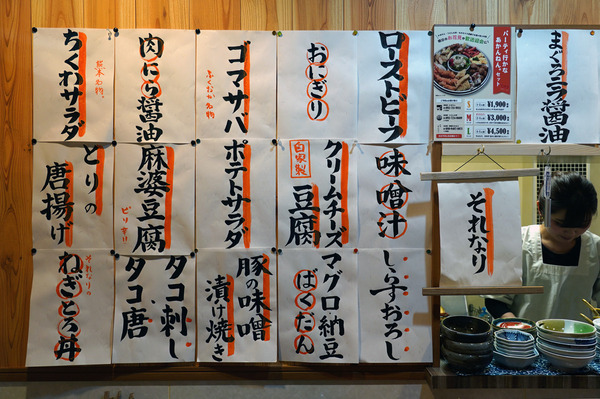 まぐろニラ醤油
パーティ行かな
あかんねん。セット
S ¥1,900
M ¥3,000
L ¥4,500
ローストビーフ
おにぎり
ゴマサバ
ふくおか名物
肉にら醤油
ちくわサラダ
熊本名物。
それなり
味噌汁
自家製
クリームチーズ
豆腐
ポテトサラダ
麻婆豆腐
ピリ辛!!
とりの
唐揚げ
しらすおろし
マグロ納豆
ばくだん
豚の味噌
漬け焼き
タコ刺し
タコ唐
それなりの
ねぎとろ丼